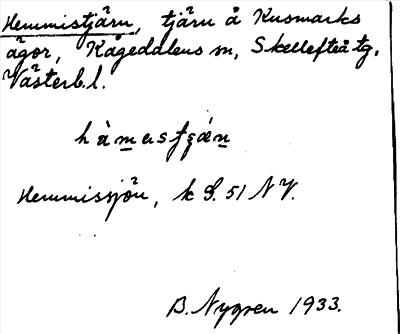 Hemmistjärn, tjärn å Kusmarks
ägor, Kågedalens sn, Skellefteå tg,
Västerb.l.
Hemmissjön, k G. 51 NV.
B. Nygren 1933.